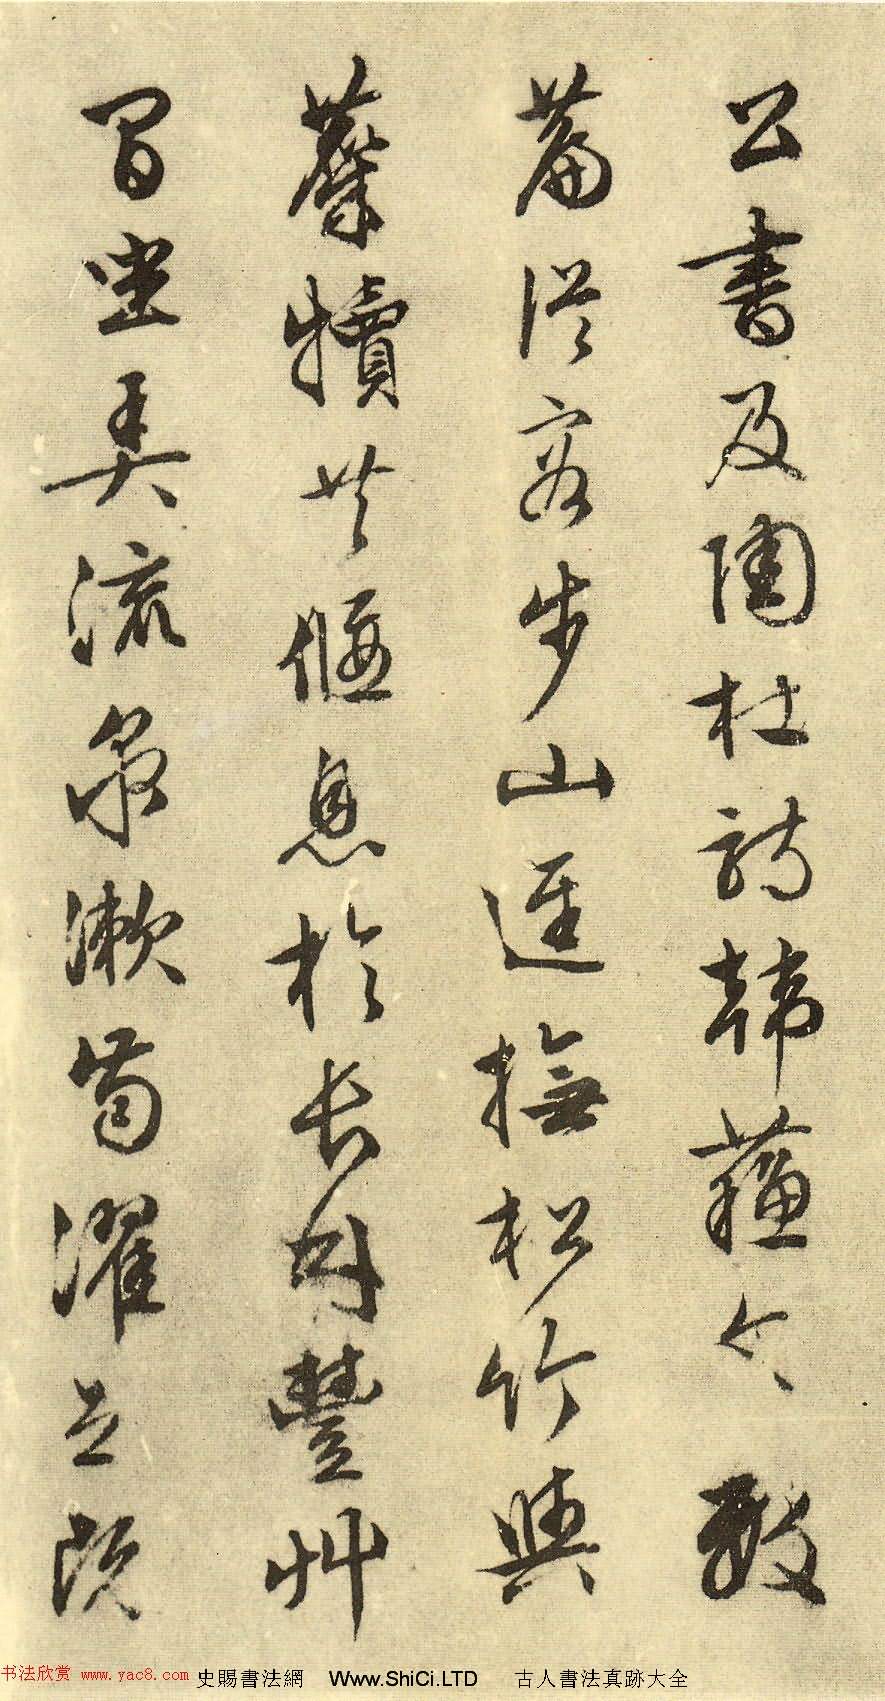 公書及陶杜詩韓蘇文數
篇從容步山逕撫松竹與
麋犢共偃息於長林豐艸
間坐弄流泉漱齒濯足既
书法欣赏 www.yac8.com 史賜書法網 Www.ShiCi.LTD 古人書法真跡大全